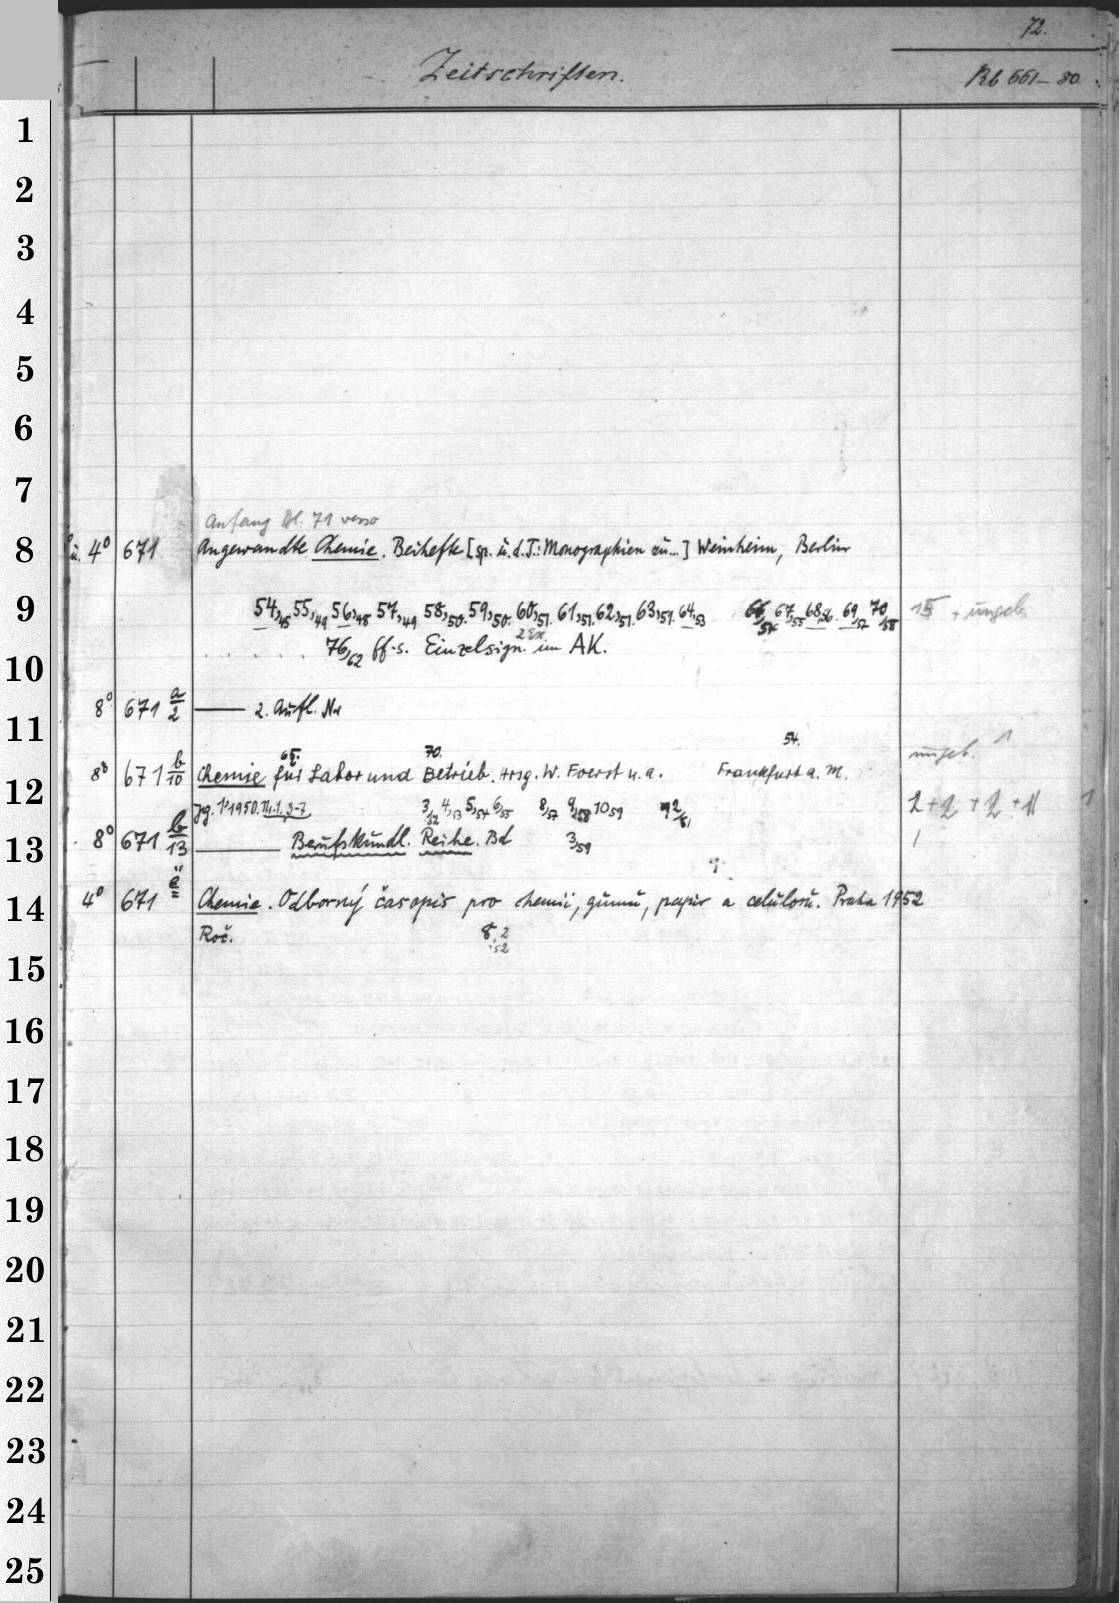 72.
Zeitschriften.
Rb 661-80
1
2
3
4
5
6
7
Anfang Bl. 71 verso
8 u. 4° 671 Angewandte Chemie. Beihefte [sp. u. d. T.: Monographien zu...] Weinheim, Berlin
9 54,45 55,49 56,48 57,49 58,50. 59,50. 60,51. 61,51. 62,51. 63,51. 64,53 66,54 67,55 68,56. 69,57 70,58 15 + ungeb.
76,62 ff. s. Einzelsign. 2 Ex. im AK.
10
8° 671 a/2 —— 2. Aufl. Nr
11
65. 70. 54. ungeb. 1
8° 671 b/10 Chemie für Labor und Betrieb. Hrsg. W. Foerst u. a. Frankfurt a. M.
12 Jg. 1'1950. Nr. 1. 3-7 3,52 4,53 5,54 6,55 8,57 9,58 10,59 12/61 2 + 2 + 2 + 1 1
8° 671 b/13 —— Berufskundl. Reihe. Bd 3,59 1
13
14 4° 671 e Chemie. Odborný časopis pro chemii, gumu, papir a celulosu. Praha 1952
Roč. 8,2 52
15
16
17
18
19
20
21
22
23
24
25